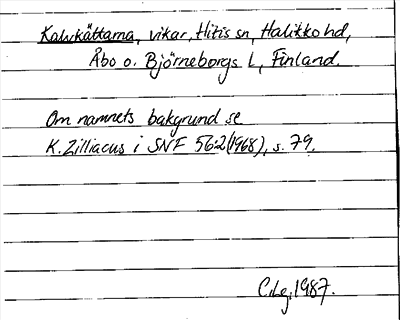 Kalvkättarna, vikar, Hitis sn, Halikko hd,
Åbo o. Björneborgs l, Finland.
Om namnets bakgrund se
K. Zilliacus i SNF 56:2 (1968), s. 79.
C. Lg. 1987.